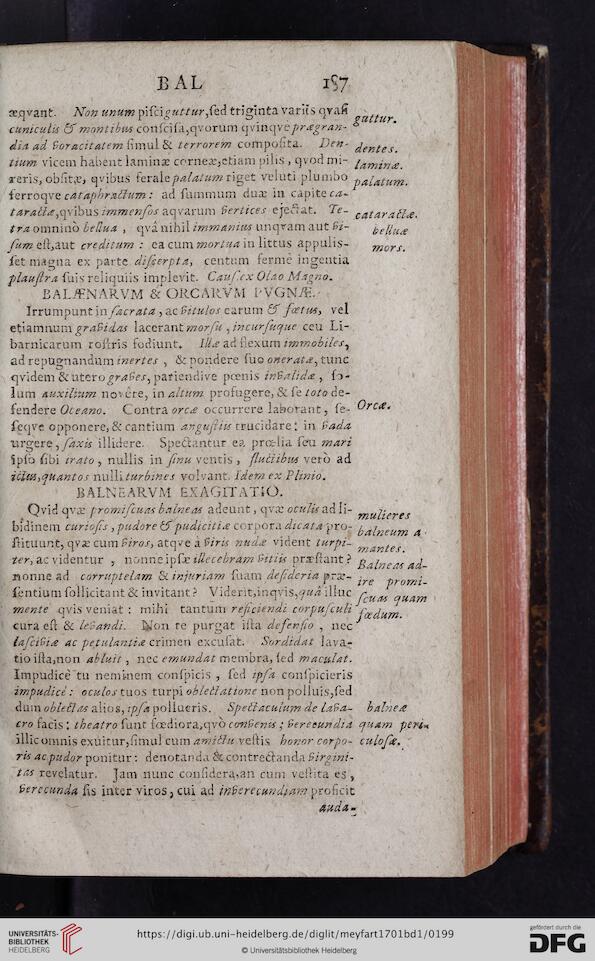 BAL 157
æqvant. Non unum pisci guttur, sed triginta variis qvasi
cuniculis & montibus conscisa, qvorum qvinqve prægran-
dia ad voracitatem simul & terrorem composita. Den-
tium vicem habent laminæ corneæ, etiam pilis, qvod mi-
reris, obsitæ, qvibus ferale palatum riget veluti plumbo
ferroqve cataphractum: ad summum duæ in capite ca-
taractæ, qvibus immensos aqvarum vertices ejectat. Te-
tra omninò bellua, qvâ nihil immanius unqvam aut vi-
sum est, aut creditum: ea cum mortua in littus appulis-
set magna ex parte discerpta, centum fermè ingentia
plaustra suis reliquiis implevit. Caus. ex Olao Magno.
BALÆNARVM & ORCARVM PVGNÆ.
Irrumpunt in sacrata, ac vitulos earum & fœtus, vel
etiamnum gravidas lacerant morsu, incursuque ceu Li-
barnicarum rostris fodiunt. Illæ ad flexum immobiles,
ad repugnandum inertes, & pondere suo oneratæ, tunc
qvidem & utero graves, pariendive pœnis invalidæ, so-
lum auxilium novêre, in altum profugere, & se toto de-
fendere Oceano. Contra orcæ occurrere laborant, se-
seqve opponere, & cantium angustiis trucidare: in vada
urgere, saxis illidere. Spectantur ea prœlia seu mari
ipso sibi irato, nullis in sinu ventis, fluctibus verò ad
ictus, quantos nulli turbines volvant. Idem ex Plinio.
BALNEARVM EXAGITATIO.
Qvid qvæ promiscuas balneas adeunt, qvæ oculis ad li-
bidinem curiosis, pudore & pudicitiæ corpora dicata pro-
stituunt, qvæ cum viros, atqve à viris nudæ vident turpi-
ter, ac videntur, nonne ipsæ illecebram vitiis præstant?
nonne ad corruptelam & injuriam suam desideria præ-
sentium sollicitant & invitant? Viderit, inqvis, quâ illuc
mente qvis veniat: mihi tantum reficiendi corpusculi
cura est & levandi. Non te purgat ista defensio, nec
lasciviæ ac petulantiæ crimen excusat. Sordidat lava-
tio ista, non abluit, nec emundat membra, sed maculat.
Impudicè tu neminem conspicis, sed ipsa conspicieris
impudicè: oculos tuos turpi oblectatione non polluis, sed
dum oblectas alios, ipsa pollueris. Spectaculum de lava-
cro facis: theatro sunt fœdiora, qvò convenis; verecundia
illic omnis exuitur, simul cum amictu vestis honor corpo-
ris ac pudor ponitur: denotanda & contrectanda virgini-
tas revelatur. Jam nunc considera, an cum vestita es,
verecunda sis inter viros, cui ad inverecundiam proficit
auda-
guttur.
dentes.
laminæ.
palatum.
cataractæ.
belluæ
mors.
Orcæ.
mulieres
balneum a-
mantes.
Balneas ad-
ire promi-
scuas quam
fœdum.
balneæ
quam peri-
culosæ.
UNIVERSITÄTS-
BIBLIOTHEK
HEIDELBERG
https://digi.ub.uni-heidelberg.de/diglit/meyfart1701bd1/0199
© Universitätsbibliothek Heidelberg
gefördert durch die
DFG